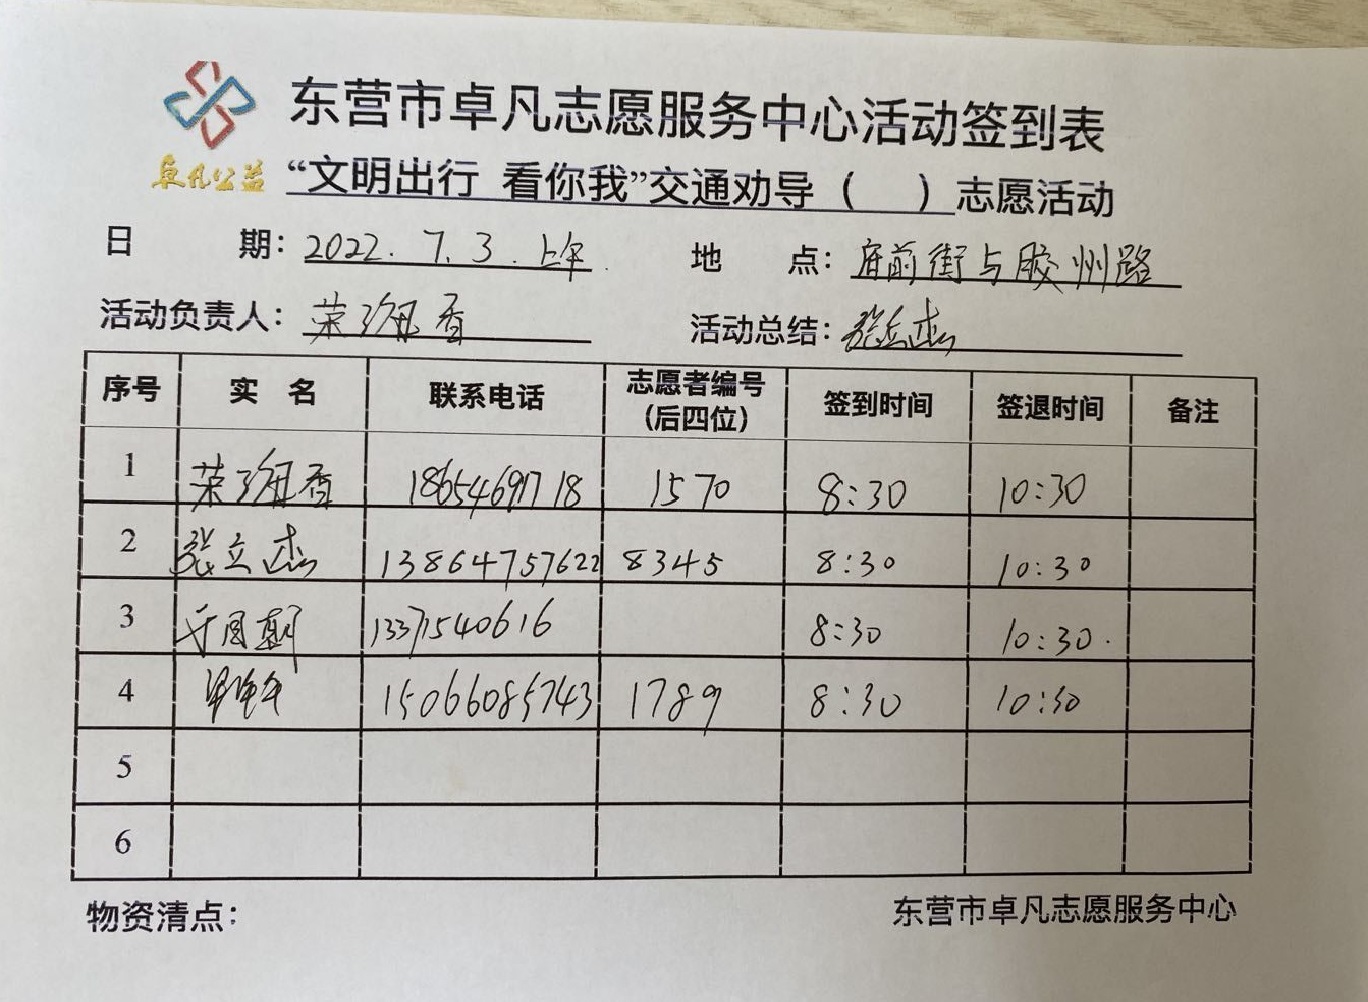 东营市卓凡志愿服务中心活动签到表
卓凡公益
“文明出行 看你我”交通劝导（ ）志愿活动
日 期：2022.7.3.上午. 地 点：府前街与胶州路
活动负责人：荣珮香 活动总结：张立杰
序号 实 名 联系电话 志愿者编号（后四位） 签到时间 签退时间 备注
1 荣珮香 18654691718 1570 8:30 10:30
2 张立杰 13864757622 8345 8:30 10:30
3 13371540616 8:30 10:30.
4 15066085743 1789 8:30 10:30
5
6
物资清点： 东营市卓凡志愿服务中心